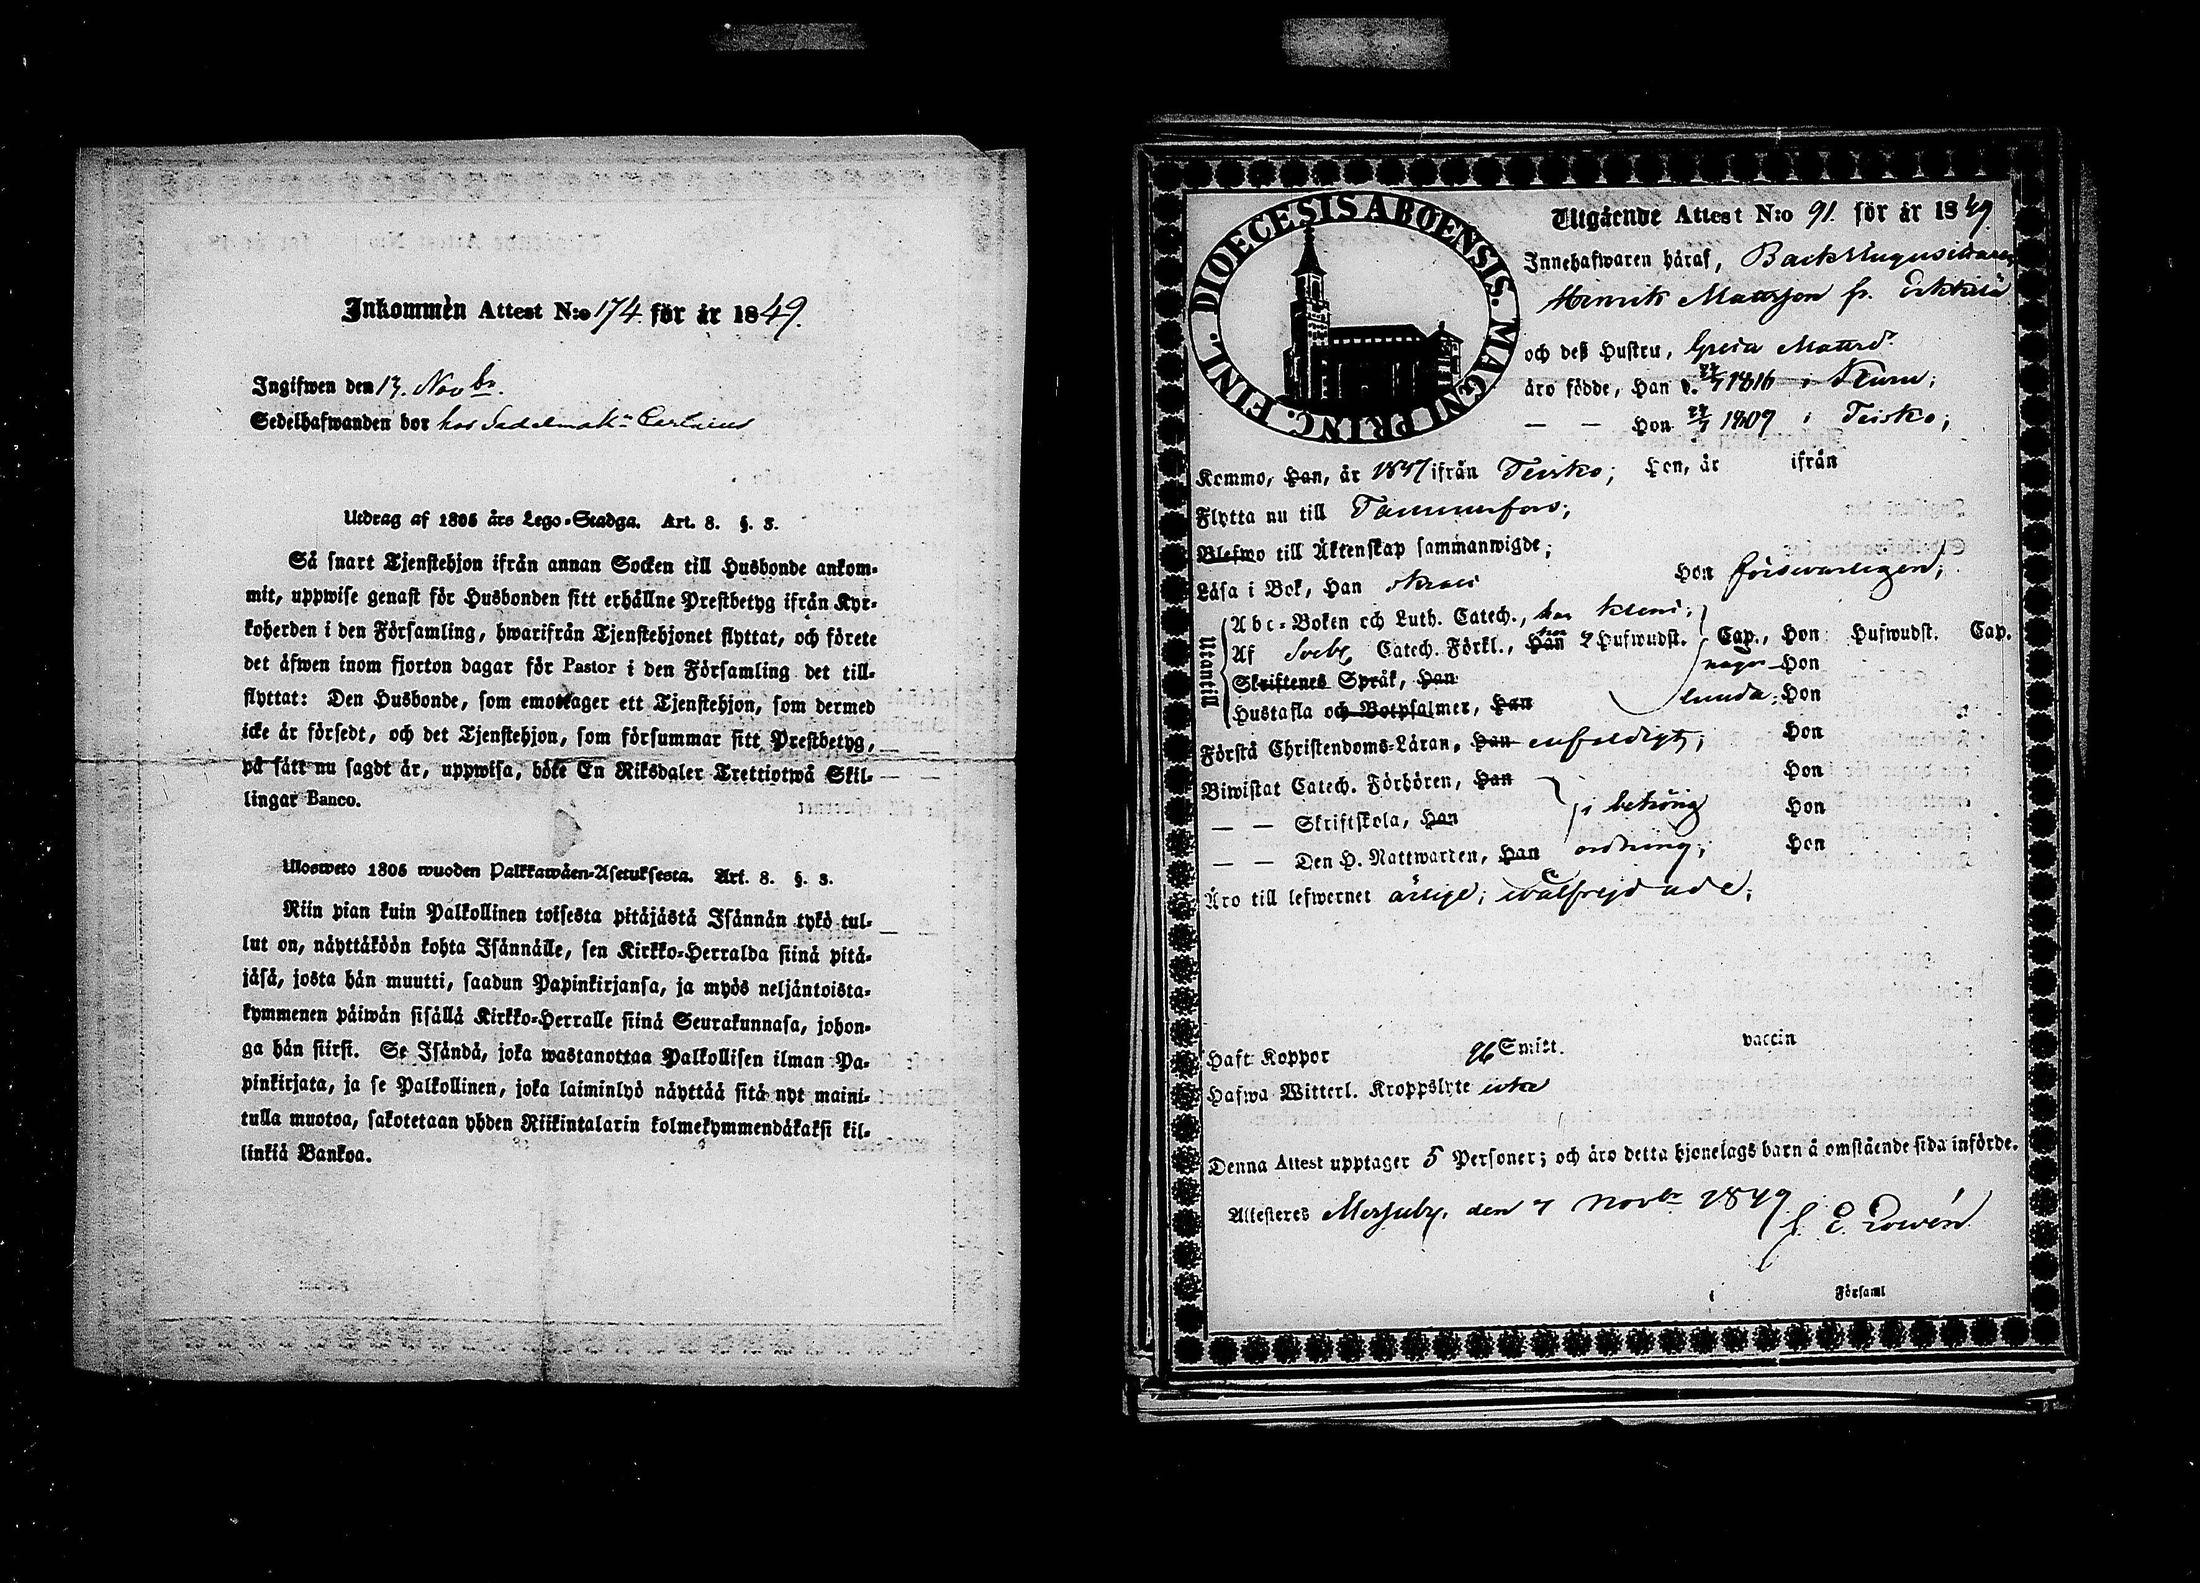 Inkommen Attest N:o 174 för år 1849.
Ingifwen den 13. Novbr.
Sedelhafwanden bor hos Sadelmak
Utdrag af 1805 års Lego-Stadga. Art. 8. §. 3.
Så snart Tjenstehjon ifrån annan Socken till Husbonde ankom-
mit, uppwise genast för Husbonden sitt erhållne Prestbetyg ifrån Kyr-
koherden i den Församling, hwarifrån Tjenstehjonet flyttat, och förete
det äfwen inom fjorton dagar för Pastor i den Församling det till-
flyttat: Den Husbonde, som emottager ett Tjenstehjon, som dermed
icke är försedt, och det Tjenstehjon, som försummar sitt Prestbetyg,
på sätt nu sagdt är, uppwisa, böte En Riksdaler Trettiotwå Skil-
lingar Banco.
Ulosweto 1805 wuoden Palkkawäen-Asetuksesta. Art. 8. §. 3.
Niin pian kuin Palkollinen toisesta pitäjästä Isännän tykö tul-
lut on, näyttäköön kohta Isännälle, sen Kirkko-Herralda siinä pitä-
jäsä, josta hän muutti, saadun Papinkirjansa, ja myös neljäntoista-
kymmenen päiwän sisällä Kirkko-Herralle siinä Seurakunnasa, johon-
ga hän siirsi. Se Isändä, joka wastanottaa Palkollisen ilman Pa-
pinkirjata, ja se Palkollinen, joka laiminlyö näyttää sitä nyt maini-
tulla muotoa, sakotetaan yhden Riikintalarin kolmekymmendäkaksi kil-
linkiä Bankoa.
DIOECESIS ABOENSIS. MAGNI PRINC. FINL.
Utgående Attest N:o 91. för år 1849.
Innehafwaren häraf, Backstugusittaren
Henrik Mattsson fr. Erkkilä
och deß Hustru, Greta Mattsd.
äro födde, Han d. 1816 i
— — Hon 1809 i Teisko;
Kommo, Han, år 1847 ifrån Teisko; Hon, år ifrån
Flytta nu till Tammerfors;
Blefwo till Äktenskap sammanwigde;
Läsa i Bok, Han Hon försvarligen;
Utantill
Abc-Boken och Luth. Catech., har klent;
Af Sveb. Catech. Förkl., Han 2 Hufwudst. Cap., Hon Hufwudst. Cap.
Skriftenes Språk, Han någor Hon
Hustafla och Botpsalmer, Han lunda; Hon
Förstå Christendoms-Läran, Han enfaldigt; Hon
Biwistat Catech. Förhören, Han Hon
— — Skriftskola, Han i behörig Hon
— — Den H. Nattwarden, Han ordning; Hon
Äro till lefwernet ärlige; wälfrejdade;
Haft Koppor Smitt. vaccin
Hafwa Witterl. Kroppslyte icke
Denna Attest upptager 5 Personer; och äro detta hjonelags barn å omstående sida införde.
Attesteres Messuby, den 7 Novbr 1849.
Församl